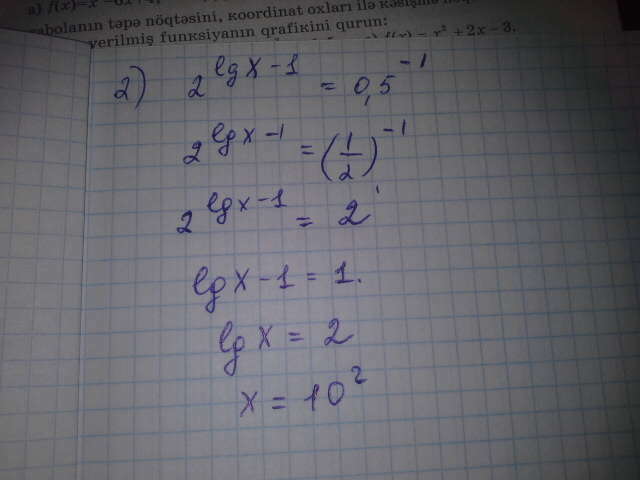 a) f(x)=x²
təpə nöqtəsini, koordinat oxları ilə kəsişmə
verilmiş funksiyanın qrafikini qurun:
f(x) = x² + 2x − 3.
2) 2^(lg x − 1) = 0,5^(−1)
2^(lg x − 1) = (1/2)^(−1)
2^(lg x − 1) = 2^1
lg x − 1 = 1.
lg x = 2
x = 10²